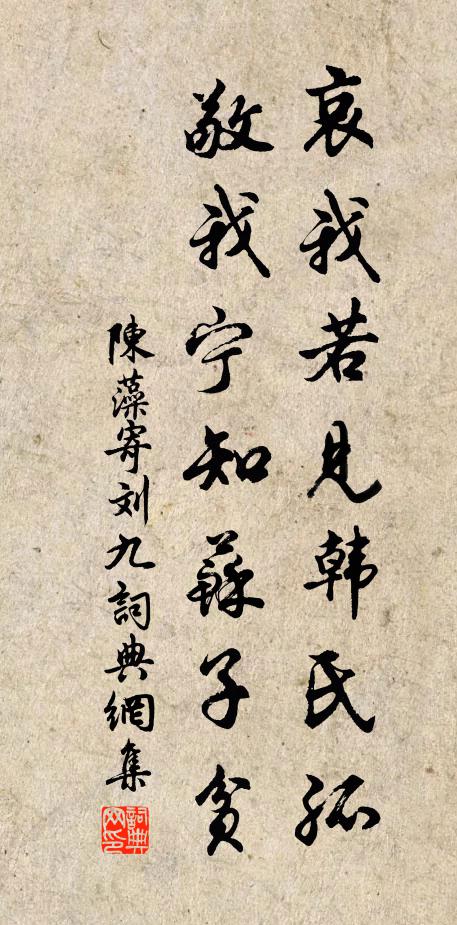 哀我若見韩氏孤
敬我宁知蘇子貧
陳藻寄刘九詞典網集
詞典网印